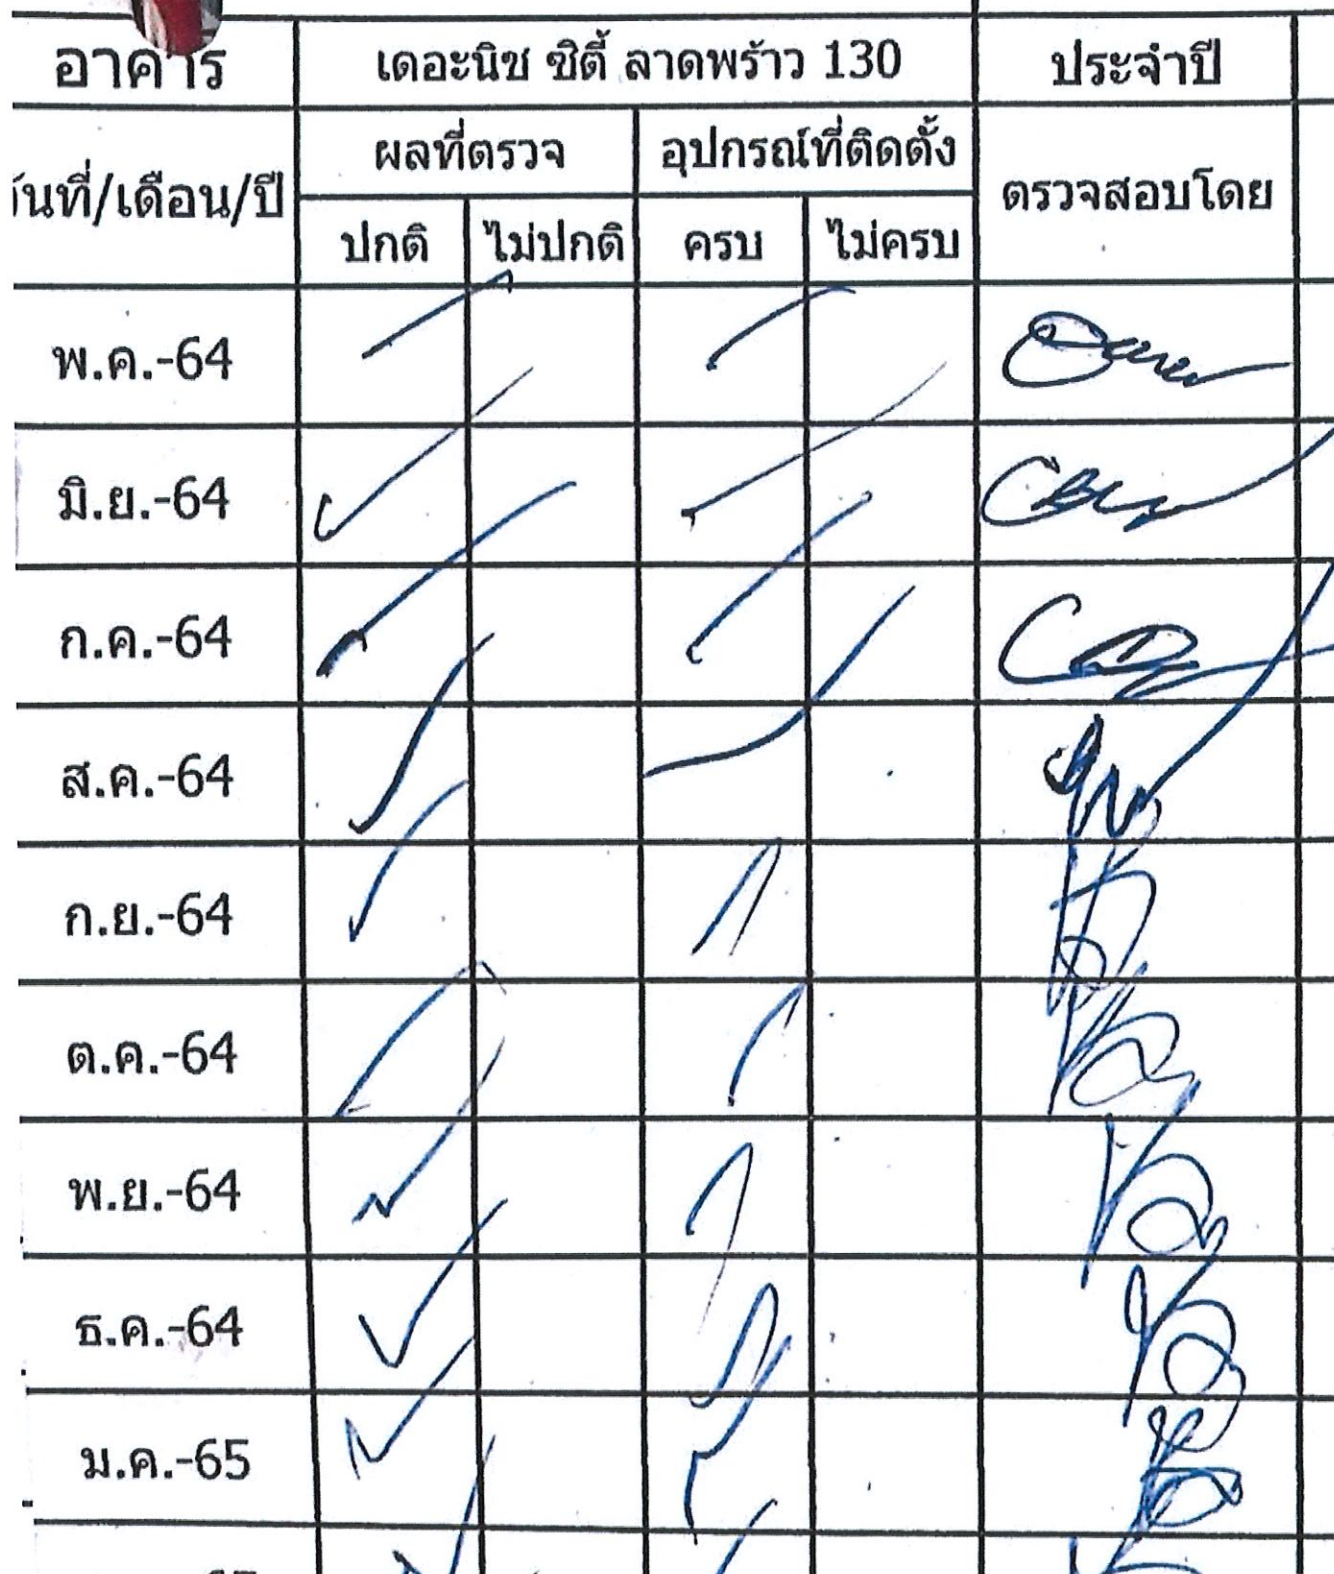 อาคาร เดอะนิช ซิตี้ ลาดพร้าว 130 ประจำปี
วันที่/เดือน/ปี ผลที่ตรวจ อุปกรณ์ที่ติดตั้ง ตรวจสอบโดย
ปกติ ไม่ปกติ ครบ ไม่ครบ
พ.ค.-64
มิ.ย.-64
ก.ค.-64
ส.ค.-64
ก.ย.-64
ต.ค.-64
พ.ย.-64
ธ.ค.-64
ม.ค.-65